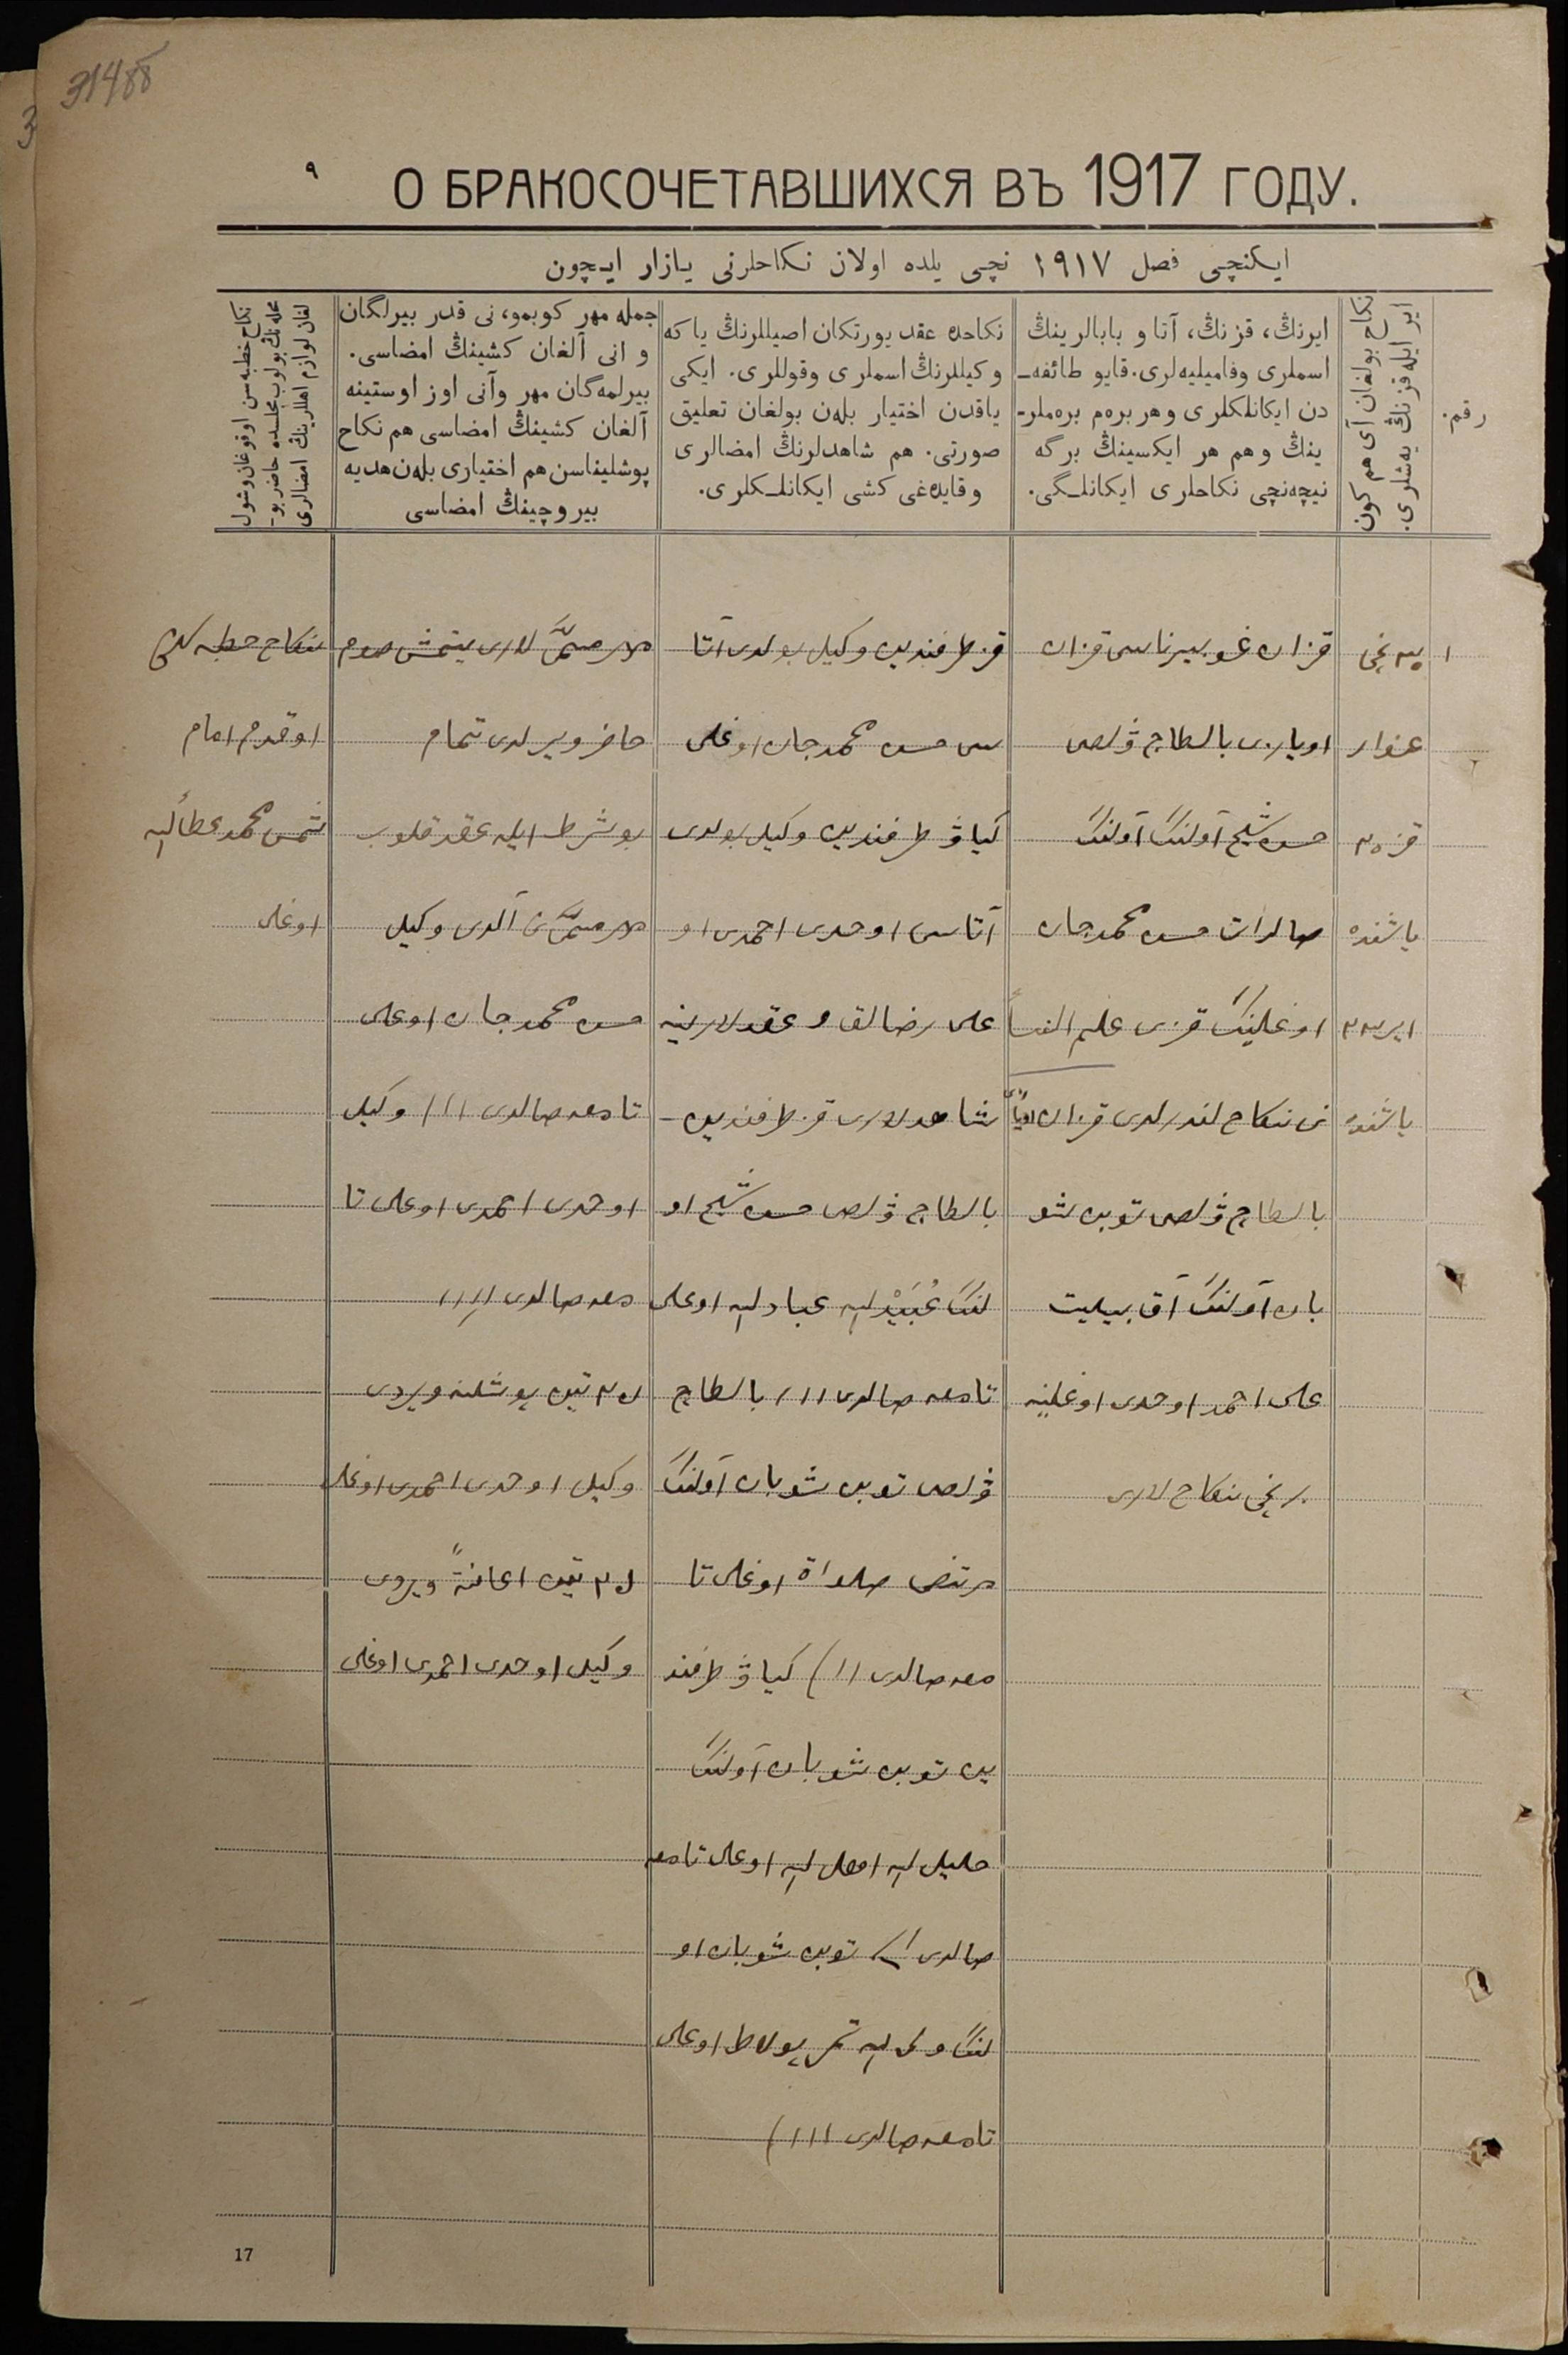 314об
٩
О БРАКОСОЧЕТАВШИХСЯ ВЪ 1917 ГОДУ.
ایکنچی فصل ١٩١٧ نچی یلده اولان نکاحلرنی یازار ایچون
رقم.
نکاح بولغان آی هم کون
ایر ایله قزنڭ یەشلری.
ایرنڭ، قزنڭ، آتا و بابالرینڭ
اسملری وفامیلیەلری. قایو طائفە-
دن ایکانلکلری وهر برەم برەملر-
ینڭ وهم هر ایکسینڭ برگه
نیچەنچی نکاحلری ایکانلـگی.
نکاحده عقد یورتکان اصیللرنڭ یا که
وکیللرنڭ اسملری وقوللری. ایکی
یاقدن اختیار بلەن بولغان تعلیق
صورتی. هم شاهدلرنڭ امضالری
وقایدەغی کشی ایکانلـکلری.
جمله مهر کوبمو، نی قدر بیرلگان
و انی آلغان کشینڭ امضاسی.
بیرلمەگان مهر وآنی اوز اوستینه
آلغان کشینڭ امضاسی هم نکاح
پوشلیناسن هم اختیاری بلەن هدیه
بیروچینڭ امضاسی
نکاح خطبەسن اوقوغان وشول
محلەنڭ بولوب مجلسده حاضر بو-
لغان لوازم اهللرینڭ امضالری
١
نچی
غنوار
قز ٢٠
یاشنده
ایر ٢٣
یاشنده
قزان غوبیرناسی قزان
اویازی بالطاچ ۋلصی
حسن شیخ آولنڭ آولنڭ
حسن محمدجان
اوغلینڭ قزی
نی نکاحلندرلدی قزان
بالطاچ ۋلصی توبن شو
بان آولنڭ
علی احمد اوحدی اوغلینه
برنچی نکاحلاری
قز طرفندین وکیل بولدی آتا
سی حسن محمدجان اوغلی
کیاۋ طرفندین وکیل بولدی
آتاسی اوحدی احمدی او
علی رضالق و عقدلارینه
شاهدلاری قز طرفندین
بالطاچ ۋلصی حسن شیخ او
لنڭ عُبَیْدالله عبادالله اوغلی
تامغه صالدی ١١١ بالطاچ
ۋلصی توبن شوبان آولنڭ
مرتضی اوغلی تا
مغه صالدی ١١) کیاۋ طرفند
ین توبن شوبان آولنڭ
خلیل الله اوغلی تامغه
صالدی توبن شوبان او
لنڭ ولی الله اوغلی
تامغه صالدی ١١١)
مهر مسمّی لاری یتمش صوم
حاضر ویرلدی تمام
بو شرط ایله عقد قلوب
مهر مسمّی نی آلدی وکیل
حسن محمدجان اوغلی
تامغه صالدی ١١١ وکیل
اوحدی احمدی اوغلی تا
مغه صالدی ١١١١
تین پوشلینه ویردی
وکیل اوحدی احمدی اوغلی
تین اعانةً ویردی
وکیل اوحدی احمدی اوغلی
نکاح خطبه
اوقدم امام
شمس محمد عطاءالله
اوغلی
17